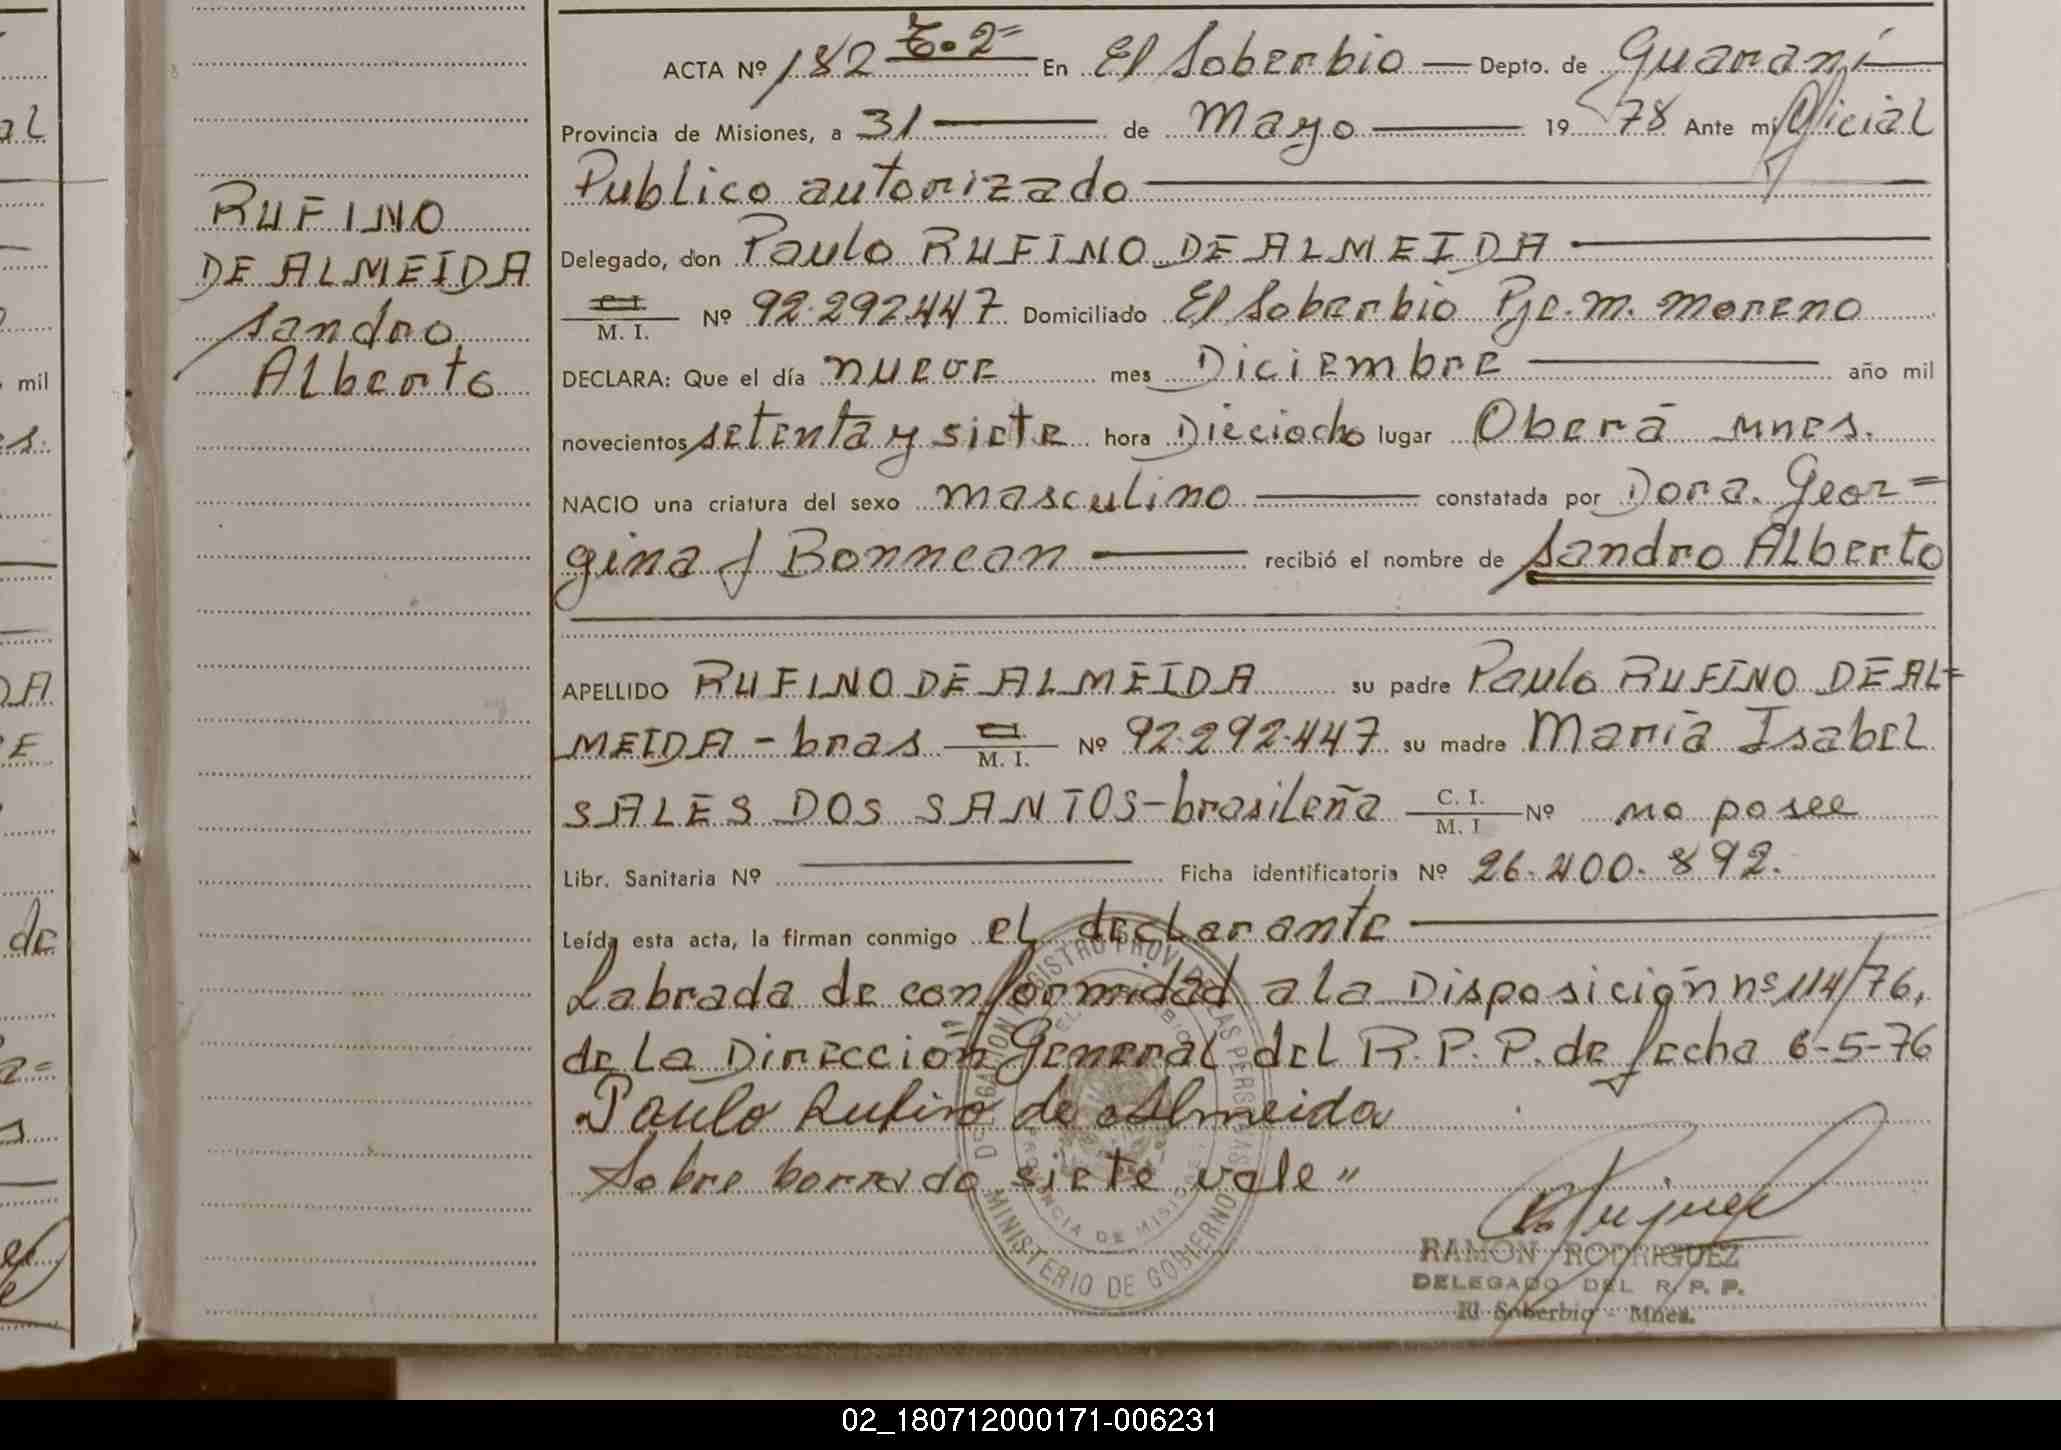 RUFINO
DE ALMEIDA
Sandro
Alberto
ACTA Nº 182 T.2= En El Soberbio — Depto. de Guaraní
Provincia de Misiones, a 31 — de Mayo — 19 78 Ante mi Oficial
Publico autorizado
Delegado, don Paulo RUFINO DE ALMEIDA
C.I. M. I. Nº 92.292.447 Domiciliado El Soberbio Pje. M. Moreno
DECLARA: Que el día nueve mes Diciembre año mil
novecientos setenta y siete hora Dieciocho lugar Oberá Mnes.
NACIO una criatura del sexo masculino constatada por Dora Geor=
gina f Bonnean recibió el nombre de Sandro Alberto
APELLIDO RUFINO DE ALMEIDA su padre Paulo RUFINO DE AL=
MEIDA - bras C.I. M. I. Nº 92.292.447 su madre María Isabel
SALES DOS SANTOS - brasileña C. I. M. I Nº no posee
Libr. Sanitaria Nº Ficha identificatoria Nº 26.400.892.
Leída esta acta, la firman conmigo el declarante
Labrada de conformidad a la Disposición nº 114/76,
de la Dirección General del R.P.P. de fecha 6-5-76
Paulo Rufino de Almeida
Sobre borrado siete vale"
MINISTERIO DE GOBIERNO
PROVINCIA DE MISIONES
RAMON RODRIGUEZ
DELEGADO DEL R. P. P.
El Soberbio - Mnes.
mil
de
02_180712000171-006231